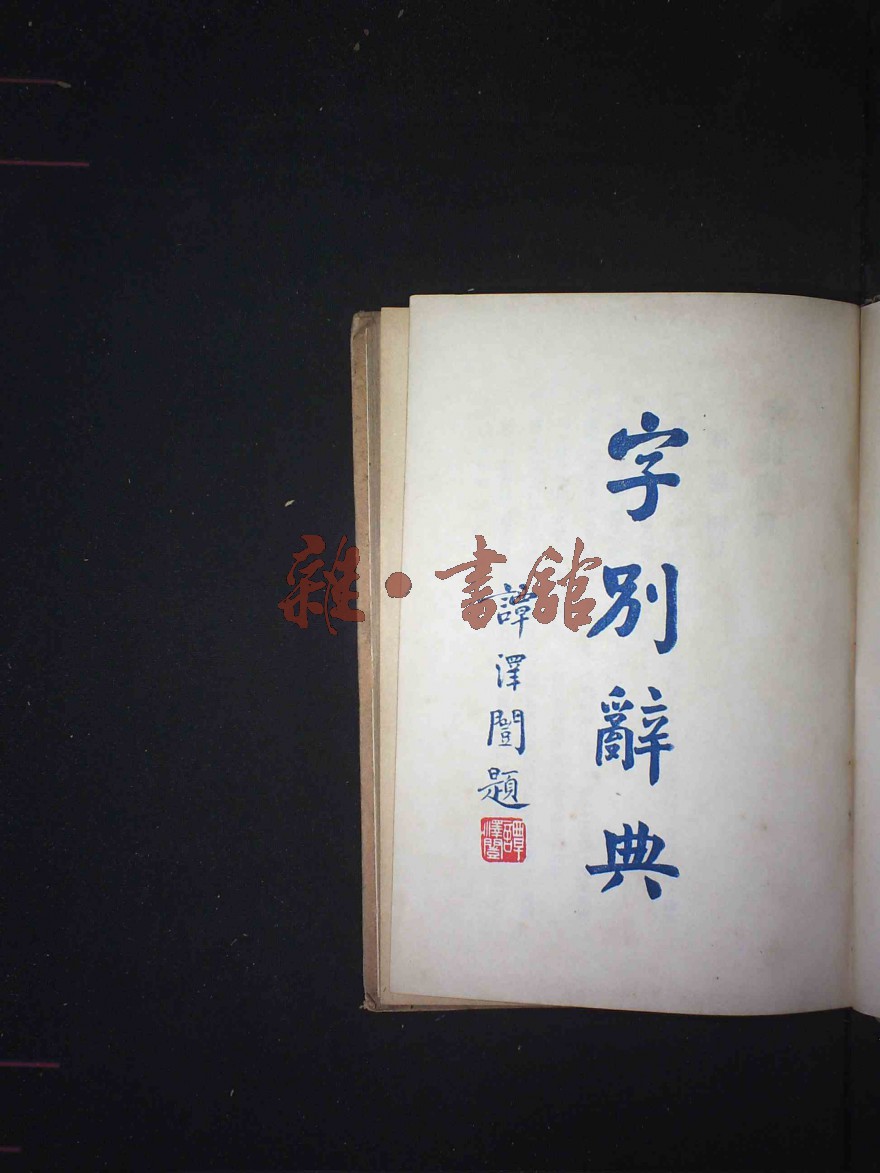 字別辭典
譚澤闓題
譚澤闓
雜·書館